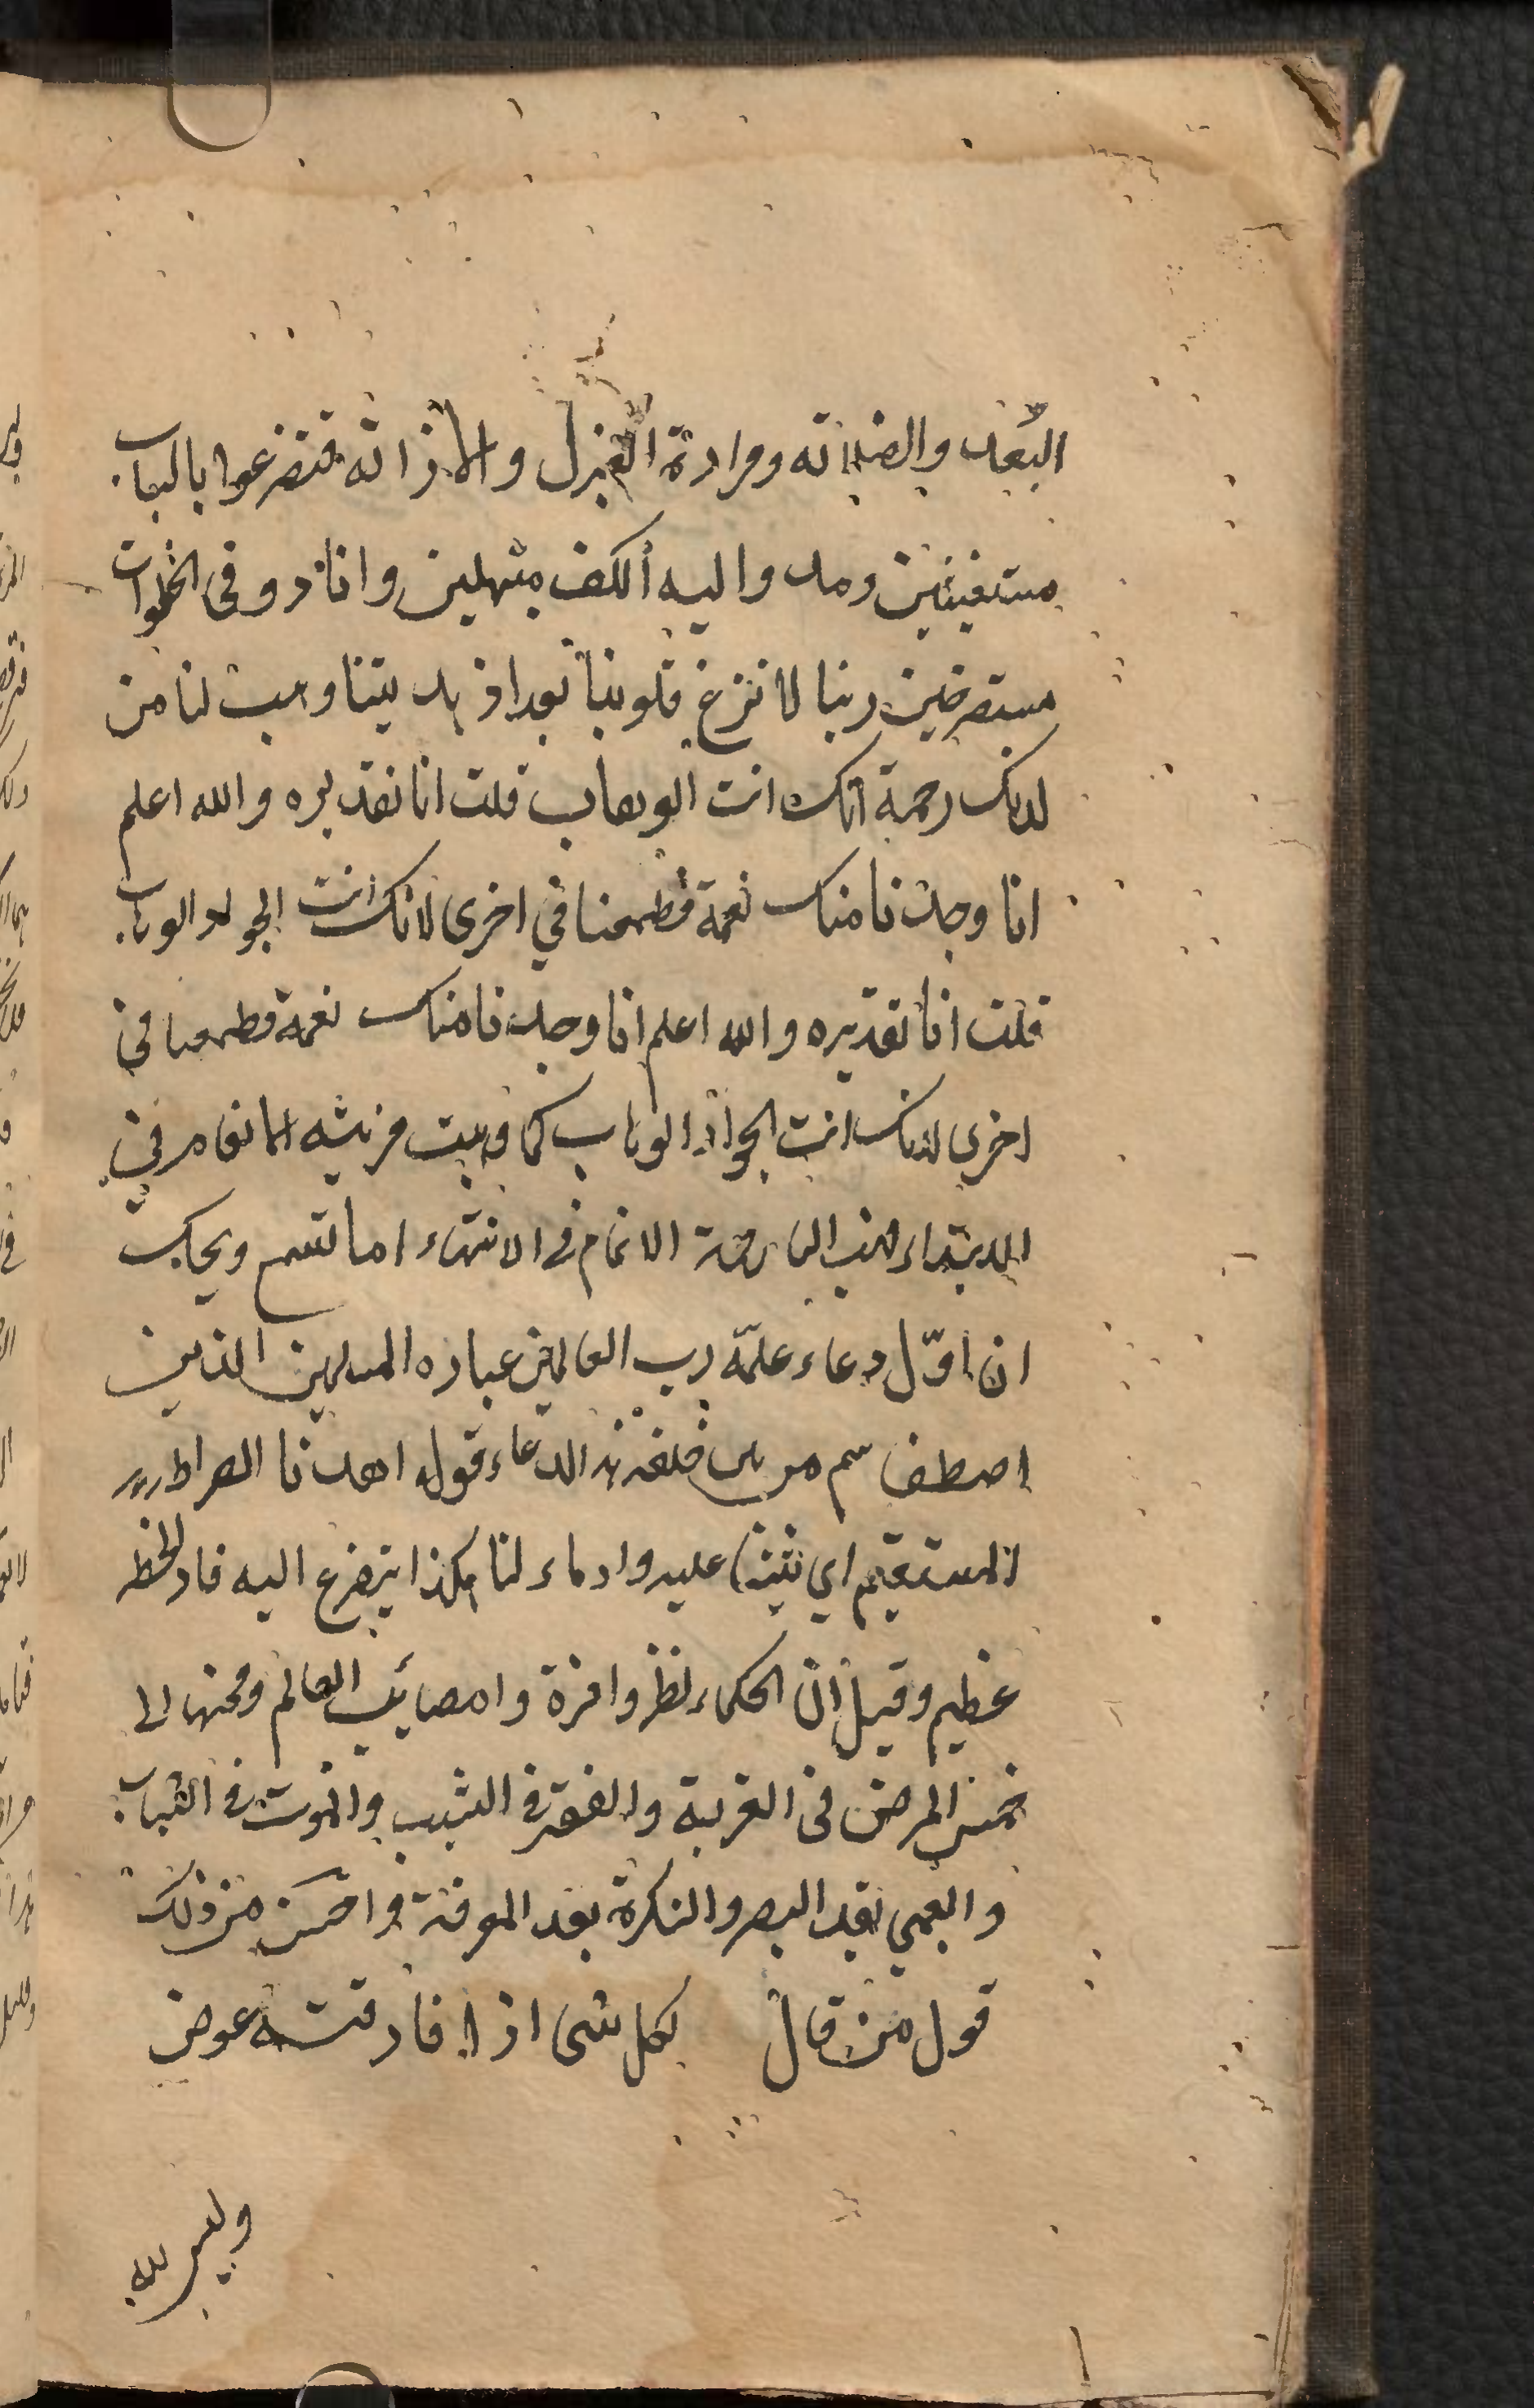 البُعد والضلالة ومرادة العزل والاذالة فتضرعوا بالباب
مستغيثين ومدوا اليه أكف مبتهلين وانا دو في الخلوات
مستعرضين ربنا لا تزغ قلوبنا بعد اذ هديتنا وهب لنا من
لدنك رحمة انك انت الوهاب قلت انا تقديره والله اعلم
انا وجدنا منك نعمة فطمعنا في اخرى لانك انت الجواد الوهاب
قلت انا تقديره والله اعلم انا وجدنا منك نعمة فطمعنا في
اخرى لانك انت الجواد الوهاب كما وهبت مزيته الانعام في
الابتداء فهب الينا رحمة الاتمام في الانتهاء اما تسمع ويحك
ان اوّل دعاء علمّه رب العالمين عباده المسلمين الذين
اصطفاهم من بين خلقه هذا الدعاء قوله اهدنا الصراط
المستقيم اي ثبتنا عليه وادماء لنا هكذا يتضرع اليه فاد لخطر
عظيم وقيل ان الحكماء نظروا فردوا مصائب العالم ومحنها الى
خمس المرض في الغربة والفقر في الشيب والموت في الشباب
والعمي بعد البصر والنكرة بعد المعرفة واحسن من ذلك
قول من قال لكل شى اذا فارقته عوض
وليس لله